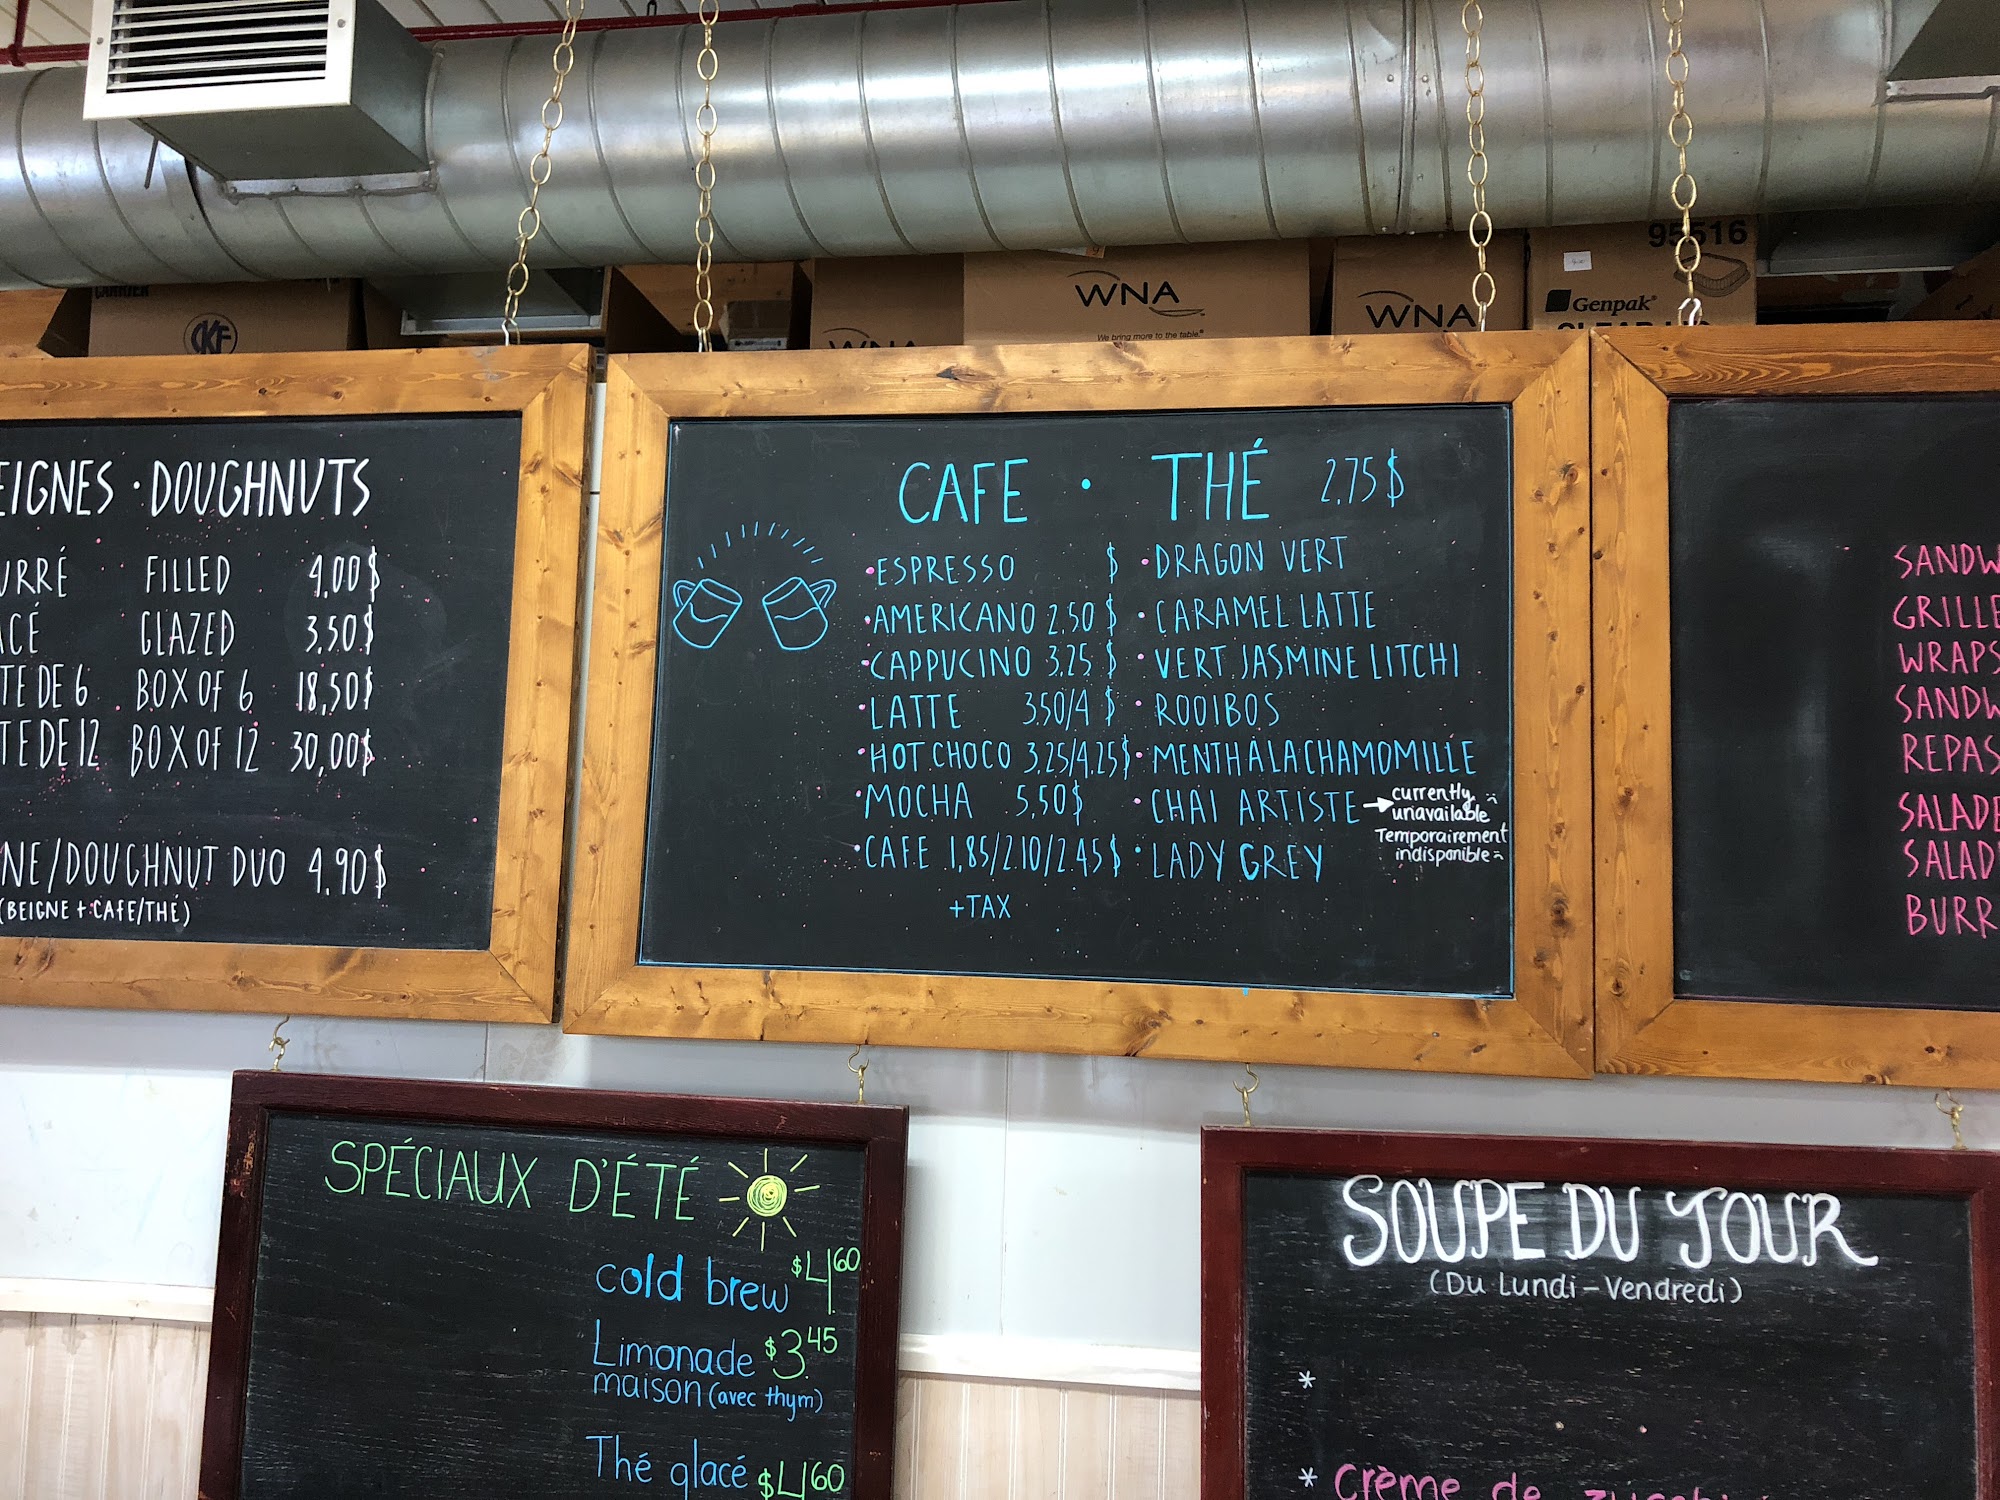 95516
WNA
We bring more to the table.®
WNA
WNA
Genpak®
CARRIER
CKF
DOUGHNUTS
FILLED 4.00$
GLAZED 3,50$
DE 6 BOX OF 6 18,50$
DE 12 BOX OF 12 30,00$
/DOUGHNUT DUO 4.90$
(BEIGNE + CAFE/THÉ)
CAFE · THÉ 2.75$
• ESPRESSO $
• AMERICANO 2.50 $
• CAPPUCINO 3.25 $
• LATTE 3.50/4 $
• HOT CHOCO 3,25/4.25$
• MOCHA 5,50$
• CAFE 1,85/2.10/2.45$
+TAX
• DRAGON VERT
• CARAMEL LATTE
• VERT JASMINE LITCHI
• ROOIBOS
• MENTH À LA CHAMOMILLE
• CHAI ARTISTE → currently
unavailable
Temporairement
indisponible
• LADY GREY
GRILLE
WRAPS
SPÉCIAUX D'ÉTÉ
cold brew $4.60
Limonade $3.45
maison (avec thym)
Thé glacé $4.60
SOUPE DU JOUR
(Du Lundi – Vendredi)
*
* Crème de